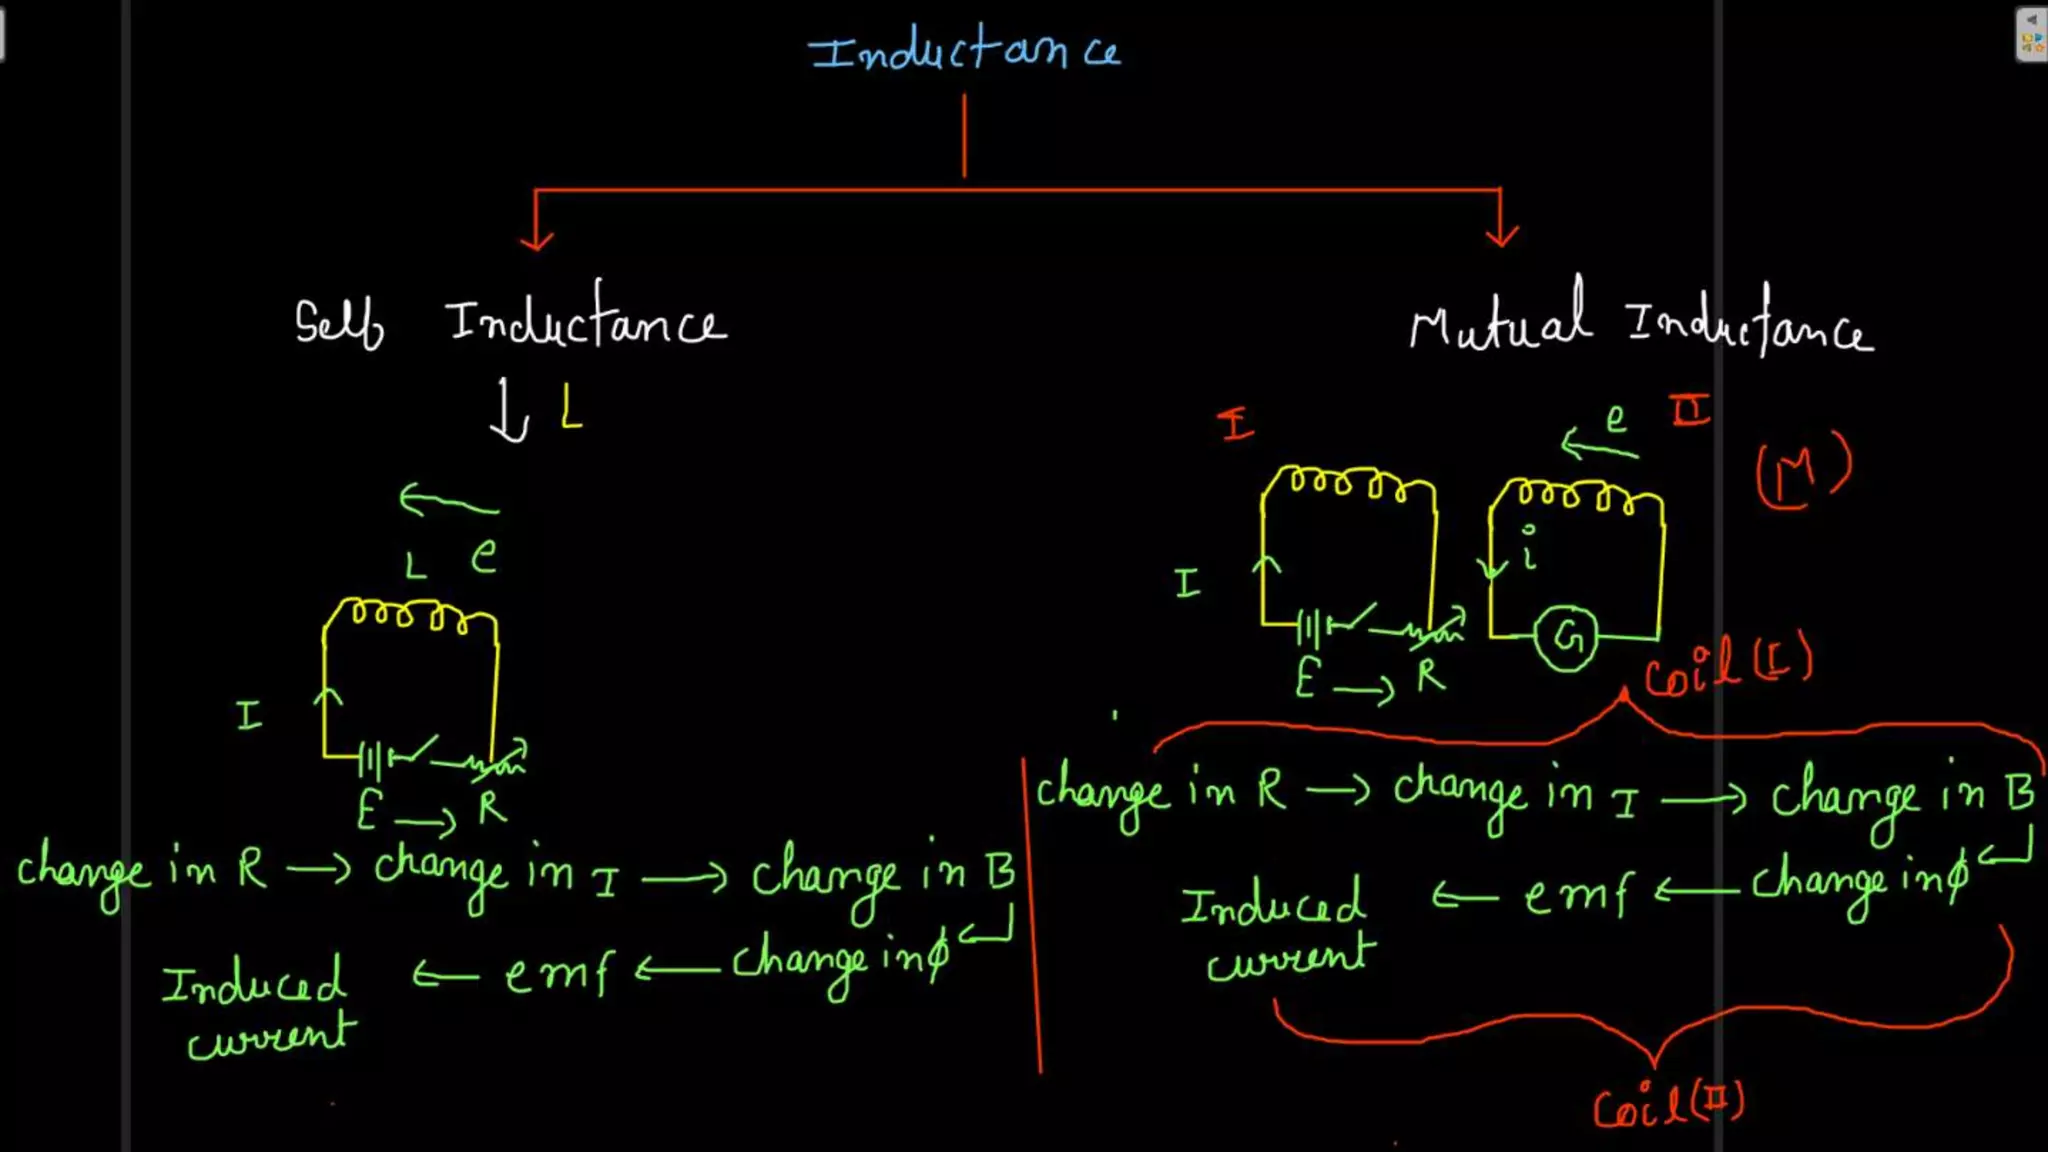 Inductance
Self Inductance
L
e
L
I
E → R
change in R → change in I → change in B
Induced current ← emf ← change in ϕ
Mutual Inductance
I
e
II
(M)
i
I
G
E → R
coil (I)
change in R → change in I → change in B
Induced current ← emf ← change in ϕ
coil (II)